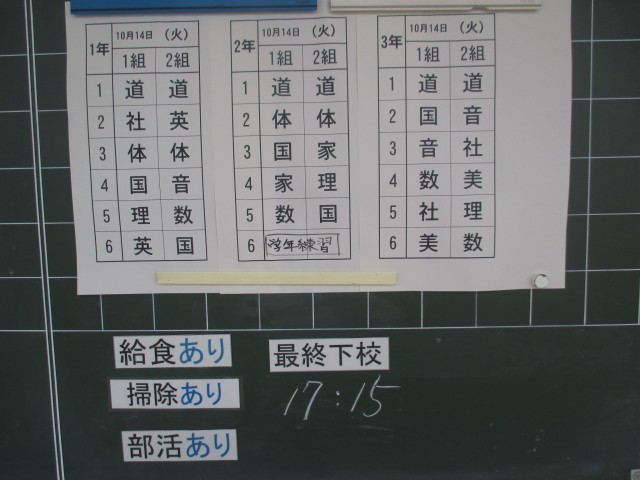 1年 10月14日 （火）
1組 2組
1 道 道
2 社 英
3 体 体
4 国 音
5 理 数
6 英 国
2年 10月14日 （火）
1組 2組
1 道 道
2 体 体
3 国 家
4 家 理
5 数 国
6 学年練習
3年 10月14日 （火）
1組 2組
1 道 道
2 国 音
3 音 社
4 数 美
5 社 理
6 美 数
給食あり
掃除あり
部活あり
最終下校
17:15